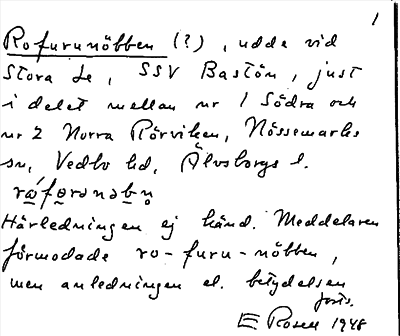 1
Rofurunöbben (?), udde vid
Stora Le, SSV Bastön, just
i delet mellan nr 1 Södra och
nr 2 Norra Rörviken, Nössemarks
sn, Vedbo hd, Älvsborgs l.
Härledningen ej känd. Meddelaren
förmodade ro-furu-nöbben,
men anledningen el. betydelsen
forts.
E. Rosen 1948